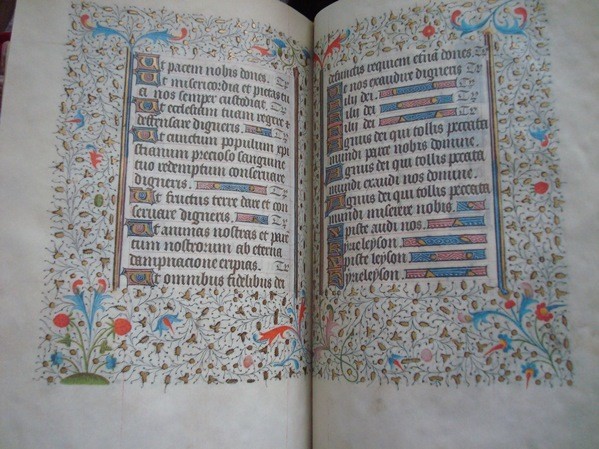 Ut pacem nobis dones. Te
Ut misericordia et pietas tu
a nos semper custodiat. Te
Ut ecclesiam tuam regere et
deffensare digneris. Te
Ut cunctum populum xpi
stianum precioso sanguine
tuo redemptum conservare
digneris.
Ut fructus terre dare et con
servare digneris.
Ut animas nostras et paren
tum nostrorum ab eterna
dampnacione eripias. Te
Ut omnibus fidelibus de
defunctis requiem eternam dones. Te
Ut nos exaudire digneris
Fili dei.
Fili dei.
Fili dei
Agnus dei qui tollis peccata
mundi parce nobis domine.
Agnus dei qui tollis peccata
mundi exaudi nos domine.
Agnus dei qui tollis peccata
mundi miserere nobis.
Xpiste audi nos.
Xpiste leyson
Kyrieleyson